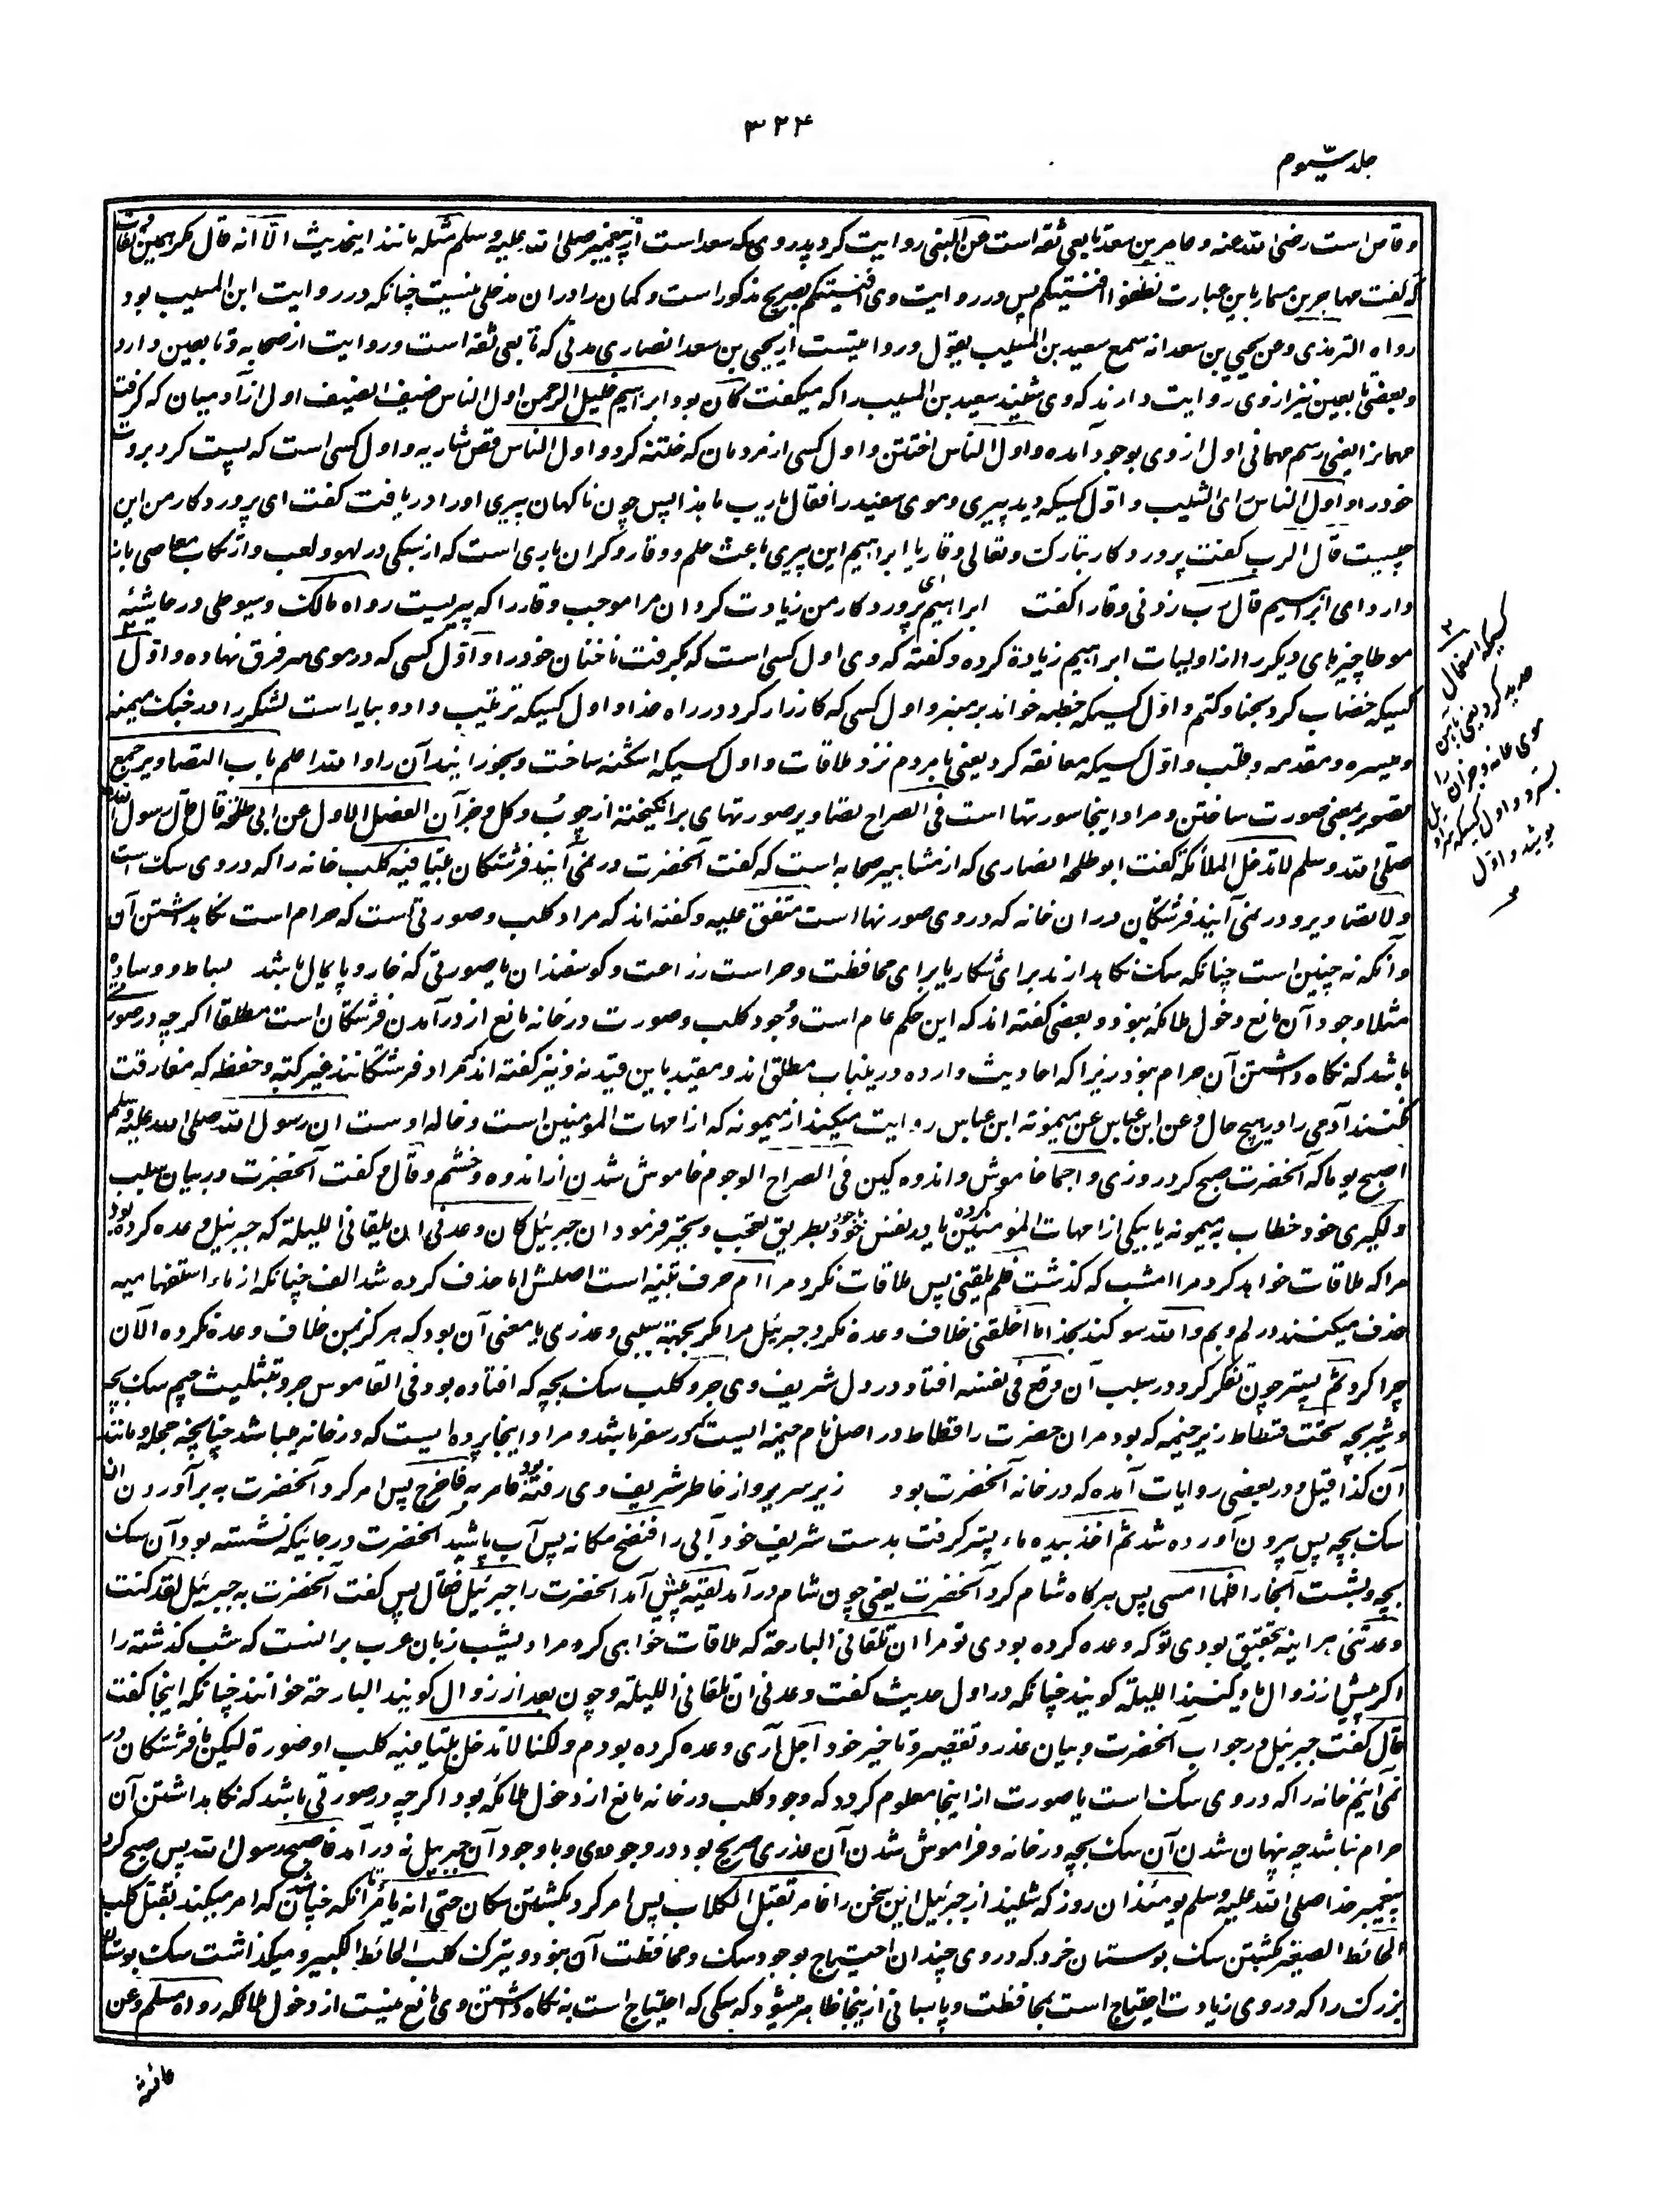 ۳۲۴
جلد سیوم
وقاص است رضی الله عنه و عامر بن سعد تابعی ثقه است عن النبی روایت کرد پدر وی که سعد است از پیغمبر صلی الله علیه وسلم مثله مانند این حدیث الا انه قال مگر همین تفاوت
که گفت مهاجر بن مسمار باین عبارت نظفوا افنیتکم پس در روایت وی افنیتکم بصریح مذکور است و گمان را دران مدخلی نیست چنانکه در روایت ابن المسیب بود
رواه الترمذی وعن یحیی بن سعد انه سمع سعید بن المسیب یقول و روایتست از یحیی بن سعد انصاری مدنی که تابعی ثقه است و روایت از صحابه و تابعین دارد
و بعضی تابعین نیز از وی روایت دارند که وی شنید سعید بن المسیب را که میگفت کان بود ابراهیم خلیل الرحمن اول الناس ضیف الضیف اول از آدمیان که گرفت
مهمانرا یعنی رسم مهمانی اول از وی بوجود آمده و اول الناس اختتن و اول کسی از مردمان که ختنه کرد و اول الناس قص شاربه و اول کسی است که پست کرد بروت
خود را و اول الناس رای الشیب و اول کسیکه دید پیری و موی سفید را فقال یارب ما هذا پس چون ناگهان پیری او را دریافت گفت ای پروردگار من این
چیست قال الرب گفت پروردگار تبارک و تعالی وقار یا ابراهیم این پیری باعث حلم و وقار و گران باری است که از سبکی در لهو و لعب و ارتکاب معاصی باز
دارد ای ابراهیم قال رب زدنی وقارا گفت ابراهیم ای پروردگار من زیادت کردان مرا موجب وقار را که پیریست رواه مالک و سیوطی در حاشیۀ
موطا چیزهای دیگر را از اولیات ابراهیم زیادة کرده و گفته که وی اول کسی است که بگرفت ناخنان خود را و اول کسی که در موی سر فرق نهاده و اول
کسیکه خضاب کرد بحنا و کتم و اول کسیکه خطبه خواند بر منبر و اول کسی که کارزار کرد در راه خدا و اول کسیکه ترتیب داد و بیاراست لشکر را در جنگ میمنه
و میسره و مقدمه و قلب و اول کسیکه معانقه کرد یعنی با مردم نزد ملاقات و اول کسیکه اشکنه ساخت و بخورانید آن را والله اعلم باب التصاویر جمع
تصویر بمعنی صورت ساختن و مراد اینجا صورتها است فی الصراح تصاویر صورتهای برانگیخته از چوب و گل و جز آن الفصل الاول عن ابی طلحة قال قال رسول الله
صلی الله وسلم لا تدخل الملائکة گفت ابو طلحه انصاری که از مشاهیر صحابه است که گفت آنحضرت در نمی آیند فرشتگان بیتا فیه کلب خانه را که در وی سک است
ولا تصاویر و در نمی آیند فرشتگان دران خانه که در وی صورتها است متفق علیه و گفته اند که مراد کلب و صورتی است که حرام است نگاهداشتن آن
و آنکه نه چنین است چنانکه سک نگاهدارند برای شکار یا برای محافظت و حراست زراعت و کوسفندان یا صورتی که خار و پایمال باشد بساط و وساده
مثلا وجود آن مانع دخول ملائکه نبود و بعضی گفته اند که این حکم عام است وجود کلب و صورت در خانه مانع از درآمدن فرشتگان است مطلقا اگرچه در صورتی
باشد که نگاه داشتن آن حرام نبود زیرا که احادیث وارده درینباب مطلق اند و مقید باین قید نه و نیز گفته اند که مراد فرشتگانند غیر کتبه و حفظه که مفارقت
نکنند آدمی را در هیچ حال وعن ابن عباس عن میمونة ابن عباس روایت میکند از میمونه که از امهات المومنین است و خاله اوست ان رسول الله صلی الله علیه وسلم
اصبح یوما که آنحضرت صبح کرد روزی واجما خاموش و اندوه کین فی الصراح الوجوم خاموش شدن از اندوه و خشم وقال و گفت آنحضرت در بیان سبب
دلگیری خود خطاب به میمونه یا بیکی از امهات المومنین یا در نفس خود بطریق تعجب و تحیر فرمود ان جبرئیل کان وعدنی ان یلقانی اللیلة که جبرئیل وعده کرده بود
مرا که ملاقات خواهد کرد مرا امشب که گذشت فلم یلقنی پس ملاقات نکرد مرا ام حرف تنبیه است اصلش اما حذف کرده شد الف چنانکه از ماء استفهامیه
حذف میکنند در لم و بم والله سوگند بخدا ما اخلفنی خلاف وعده نکرد جبرئیل مرا مگر بجهة سببی و عذری یا معنی آن بود که هرگز بمن خلاف وعده نکرده الآن
چرا کرد ثم پستر چون تفکر کرد در سبب آن وقع فی نفسه افتاد در دل شریف وی جرو کلب سک بچه که افتاده بود فی القاموس جرو بتثلیث جیم سک بچه
و شیر بچه تحت فسطاط زیر خیمه که بود مران حضرت را فسطاط در اصل نام خیمه ایست که در سفر باشد و مراد اینجا پرده ایست که در خانه میباشد چنانچه حجله و مانند
آن کذا قیل و در بعضی روایات آمده که در خانه آنحضرت بود زیر سریر و از خاطر شریف وی رفته بود فامر به فاخرج پس امر کرد آنحضرت به برآوردن ان
سک بچه پس بیرون آورده شد ثم اخذ بیده ماء پستر گرفت بدست شریف خود آبی را فنضح مکانه پس آب پاشید آنحضرت در جائیکه نشسته بود آن سک
بچه و بشست آنجا را فلما امسی پس هرگاه شام کرد آنحضرت یعنی چون شام درآمد لقیه پیش آمد آنحضرت را جبرئیل فقال پس گفت آنحضرت به جبرئیل لقد کنت
وعدتنی هر اینه بتحقیق بودی تو که وعده کرده بودی تو مرا ان تلقانی البارحة که ملاقات خواهی کرد مرا دیشب زبان عرب برانست که شب گذشته را
اگر پیش از زوال یاد کنند اللیلة گویند چنانکه در اول حدیث گفت وعدنی ان یلقانی اللیلة و چون بعد از زوال گویند البارحة خوانند چنانکه اینجا گفت
قال گفت جبرئیل در جواب آنحضرت و بیان عذر و تقصیر و تاخیر خود اجل آری وعده کرده بودم ولکنا لا ندخل بیتا فیه کلب او صورة لیکن ما فرشتگان در
نمی آئیم خانه را که در وی سک است یا صورت از اینجا معلوم کردد که وجود کلب در خانه مانع از دخول ملائکه بود اگرچه در صورتی باشد که نگاهداشتن آن
حرام نباشد چه پنهان شدن آن سک بچه در خانه و فراموش شدن آن عذری صریح بود در وجود وی و با وجود آن جبرئیل نه درآمد فاصبح رسول الله پس صبح کرد
پیغمبر خدا صلی الله علیه وسلم یومئذ ان روز که شنید از جبرئیل این سخن را فامر بقتل الکلاب پس امر کرد بکشتن سکان حتی انه یامر تا آنکه چنان شان که امر میکند بقتل کلب
الحائط الصغیر بکشتن سک بوستان خرد که در وی چندان احتیاج بوجود سک و محافظت آن نبود ویترک کلب الحائط الکبیر و میگذاشت سک بوستان
بزرک را که در وی زیادت احتیاج است بمحافظت و پاسبانی ازینجا ظاهر میشود که سکی که احتیاج است به نگاه داشتن وی مانع نیست از دخول ملائکه رواه مسلم وعن
کسیکه استعمال
حدید کرد یعنی باهن
موی عانه و جزان را
بسترد و اول کسیکه سراویل
پوشید و اول
عائشة